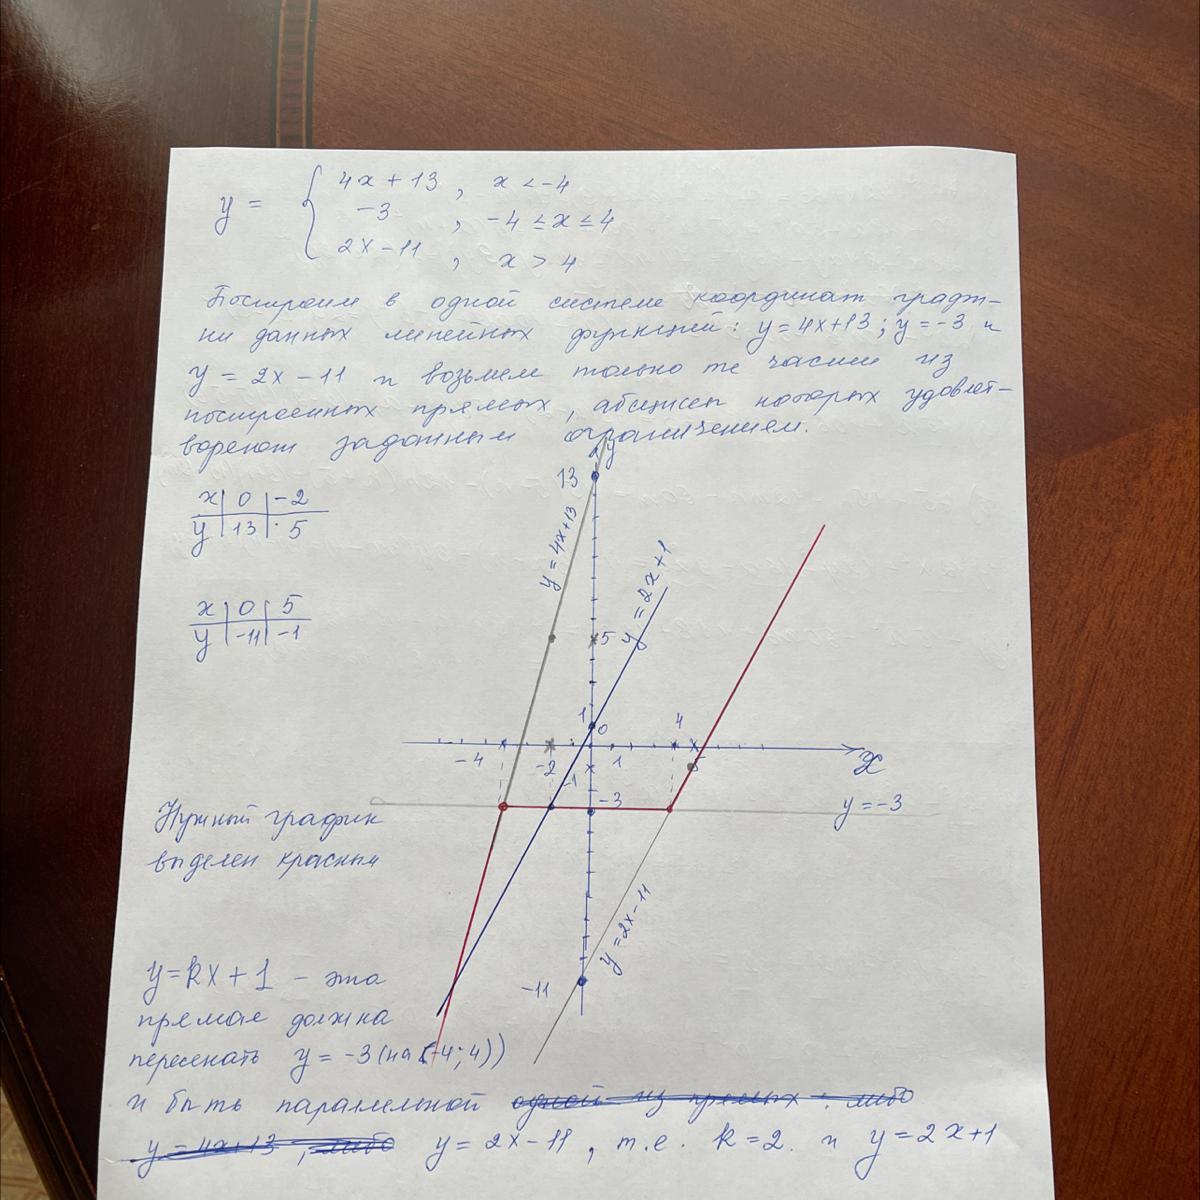 y = { 4x + 13 , x < -4
-3 , -4 ≤ x ≤ 4
2x - 11 , x > 4
Построим в одной системе координат графи-
ки данных линейных функций: y = 4x+13 ; y = -3 и
y = 2x - 11 и возьмем только те части из
построенных прямых, абциссы которых удовлет-
воряют заданным ограничением.
x | 0 | -2
y | 13 | 5
x | 0 | 5
y | -11 | -1
y
13
y = 4x+13
y = 2x+1
5
1
0
4
-4
-2
-1
1
5
x
-3
y = -3
y = 2x - 11
-11
Нужный график
выделен красным
y = kx + 1 - эта
прямая должна
пересекать y = -3 (на (-4; 4))
и быть параллельной одной из прямых : либо
y = 4x+13 , либо y = 2x - 11 , т.е. k = 2 и y = 2x+1